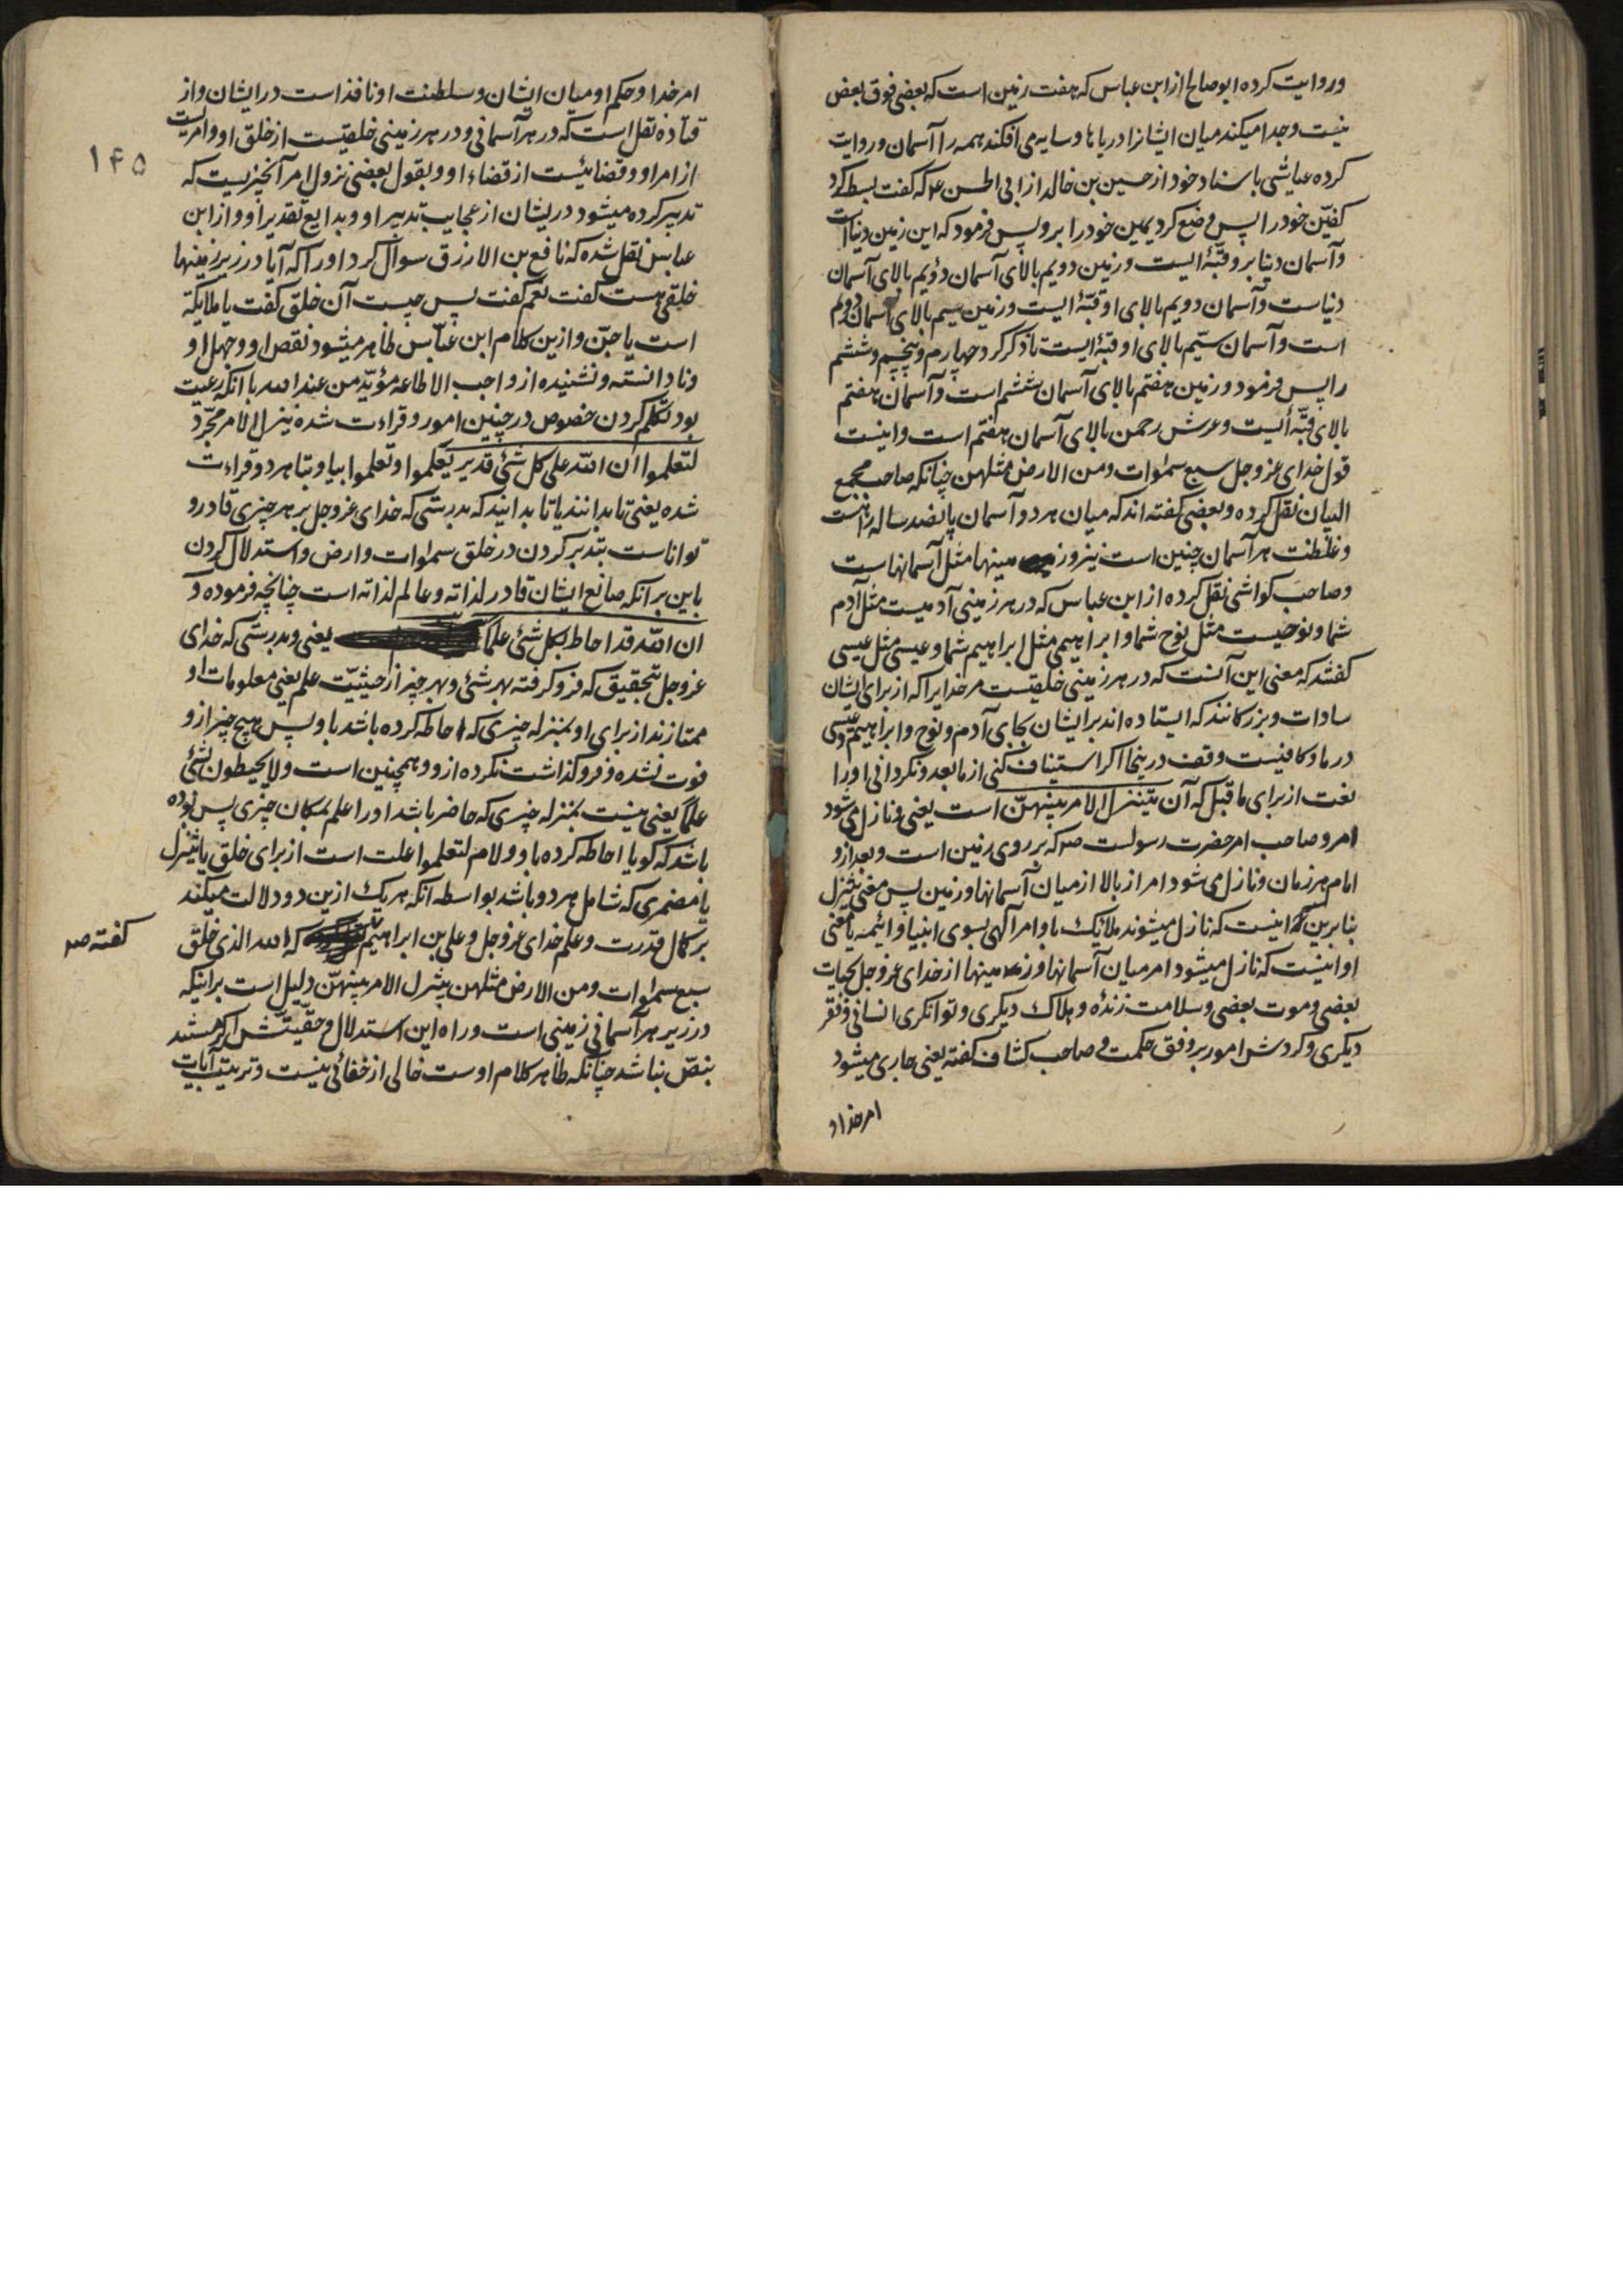 وروایت کرده ابو صالح از ابن عباس که هفت زمین است که بعضی فوق بعض
نیست و جدا میکند میان ایشانرا دریاها و سایه می افکند همه را آسمان و روایت
کرده عیاشی باسناد خود از حسین بن خالد از ابی الحسن ع که گفت بسط کرد
کفین خود را پس وضع کرد یمین خود را برو پس فرمود که این زمین دنیا است
و آسمان دنیا برو قبّهٔ ایست و زمین دویم بالای آسمان دویم بالای آسمان
دنیاست و آسمان دویم بالای او قبّهٔ ایست و زمین سیم بالای آسمان دویم
است و آسمان سیّم بالای او قبّهٔ ایست تا ذکر کرد چهارم و پنجم و ششم
را پس فرمود و زمین هفتم بالای آسمان ششم است و آسمان هفتم
بالای قبّهٔ ایست و عرش رحمن بالای آسمان هفتم است و اینست
قول خدای عز و جل سبع سموات و من الارض مثلهن چنانکه صاحب مجمع
البیان نقل کرده و بعضی گفته اند که میان هر دو آسمان پانصد ساله راهست
و غلظت هر آسمان چنین است نیز و زمینها مثل آسمانهاست
و صاحب کواشی نقل کرده از ابن عباس که در هر زمینی آدمیست مثل آدم
شما و نوحیست مثل نوح شما و ابراهیمی مثل ابراهیم شما و عیسی مثل عیسی
گفتند که معنی این آنست که در هر زمینی خلقیست مر خدایرا که از برای ایشان
سادات و بزرکانند که ایستاده اند بر ایشان بجای آدم و نوح و ابراهیم و عیسی
در ما و کافیست وقف درینجا اکر استیناف کنی از ما بعد و نکردانی او را
نعت از برای ما قبل که آن یتنزل الامر بینهنّ است یعنی و نازل می شود
امر و صاحب امر حضرت رسولست ص که بر روی زمین است و بعد ازو
امام هر زمان و نازل می شود امر از بالا از میان آسمانها و زمین پس معنی یتنزل
بنا برین اینست که نازل میشوند ملائیک باوامر آلهی بسوی انبیا و ائمه یا معنی
او اینست که نازل میشود امر میان آسمانها و زمینها از خدای عز و جل بحیات
بعضی و موت بعضی و سلامت زنده و هلاک دیکری و توانکری انسانی و فقر
دیکری و کردش امور بر وفق حکمت و صاحب کشاف گفته یعنی جاری میشود
امر خدا و
۱۴۵
امر خدا و حکم او میان ایشان و سلطنت او نافذ است در ایشان و از
قتاده نقل است که در هر آسمانی و در هر زمینی خلقیست از خلق او و امریست
از امر او و قضائیست از قضاء او و بقول بعضی نزول امر آنچیزیست که
تدبیر کرده میشود دریشان از عجایب تدبیر او و بدایع تقدیر او و از ابن
عباس نقل شده که نافع بن الازرق سوال کرد او را که آیا در زیر زمینها
خلقی هست گفت نعم گفت پس چیست آن خلق گفت یا ملایکه
است یا جنّ و ازین کلام ابن عبّاس ظاهر میشود نقص او و جهل او
و نادانسته و نشنیده از واجب الاطاعه مؤیّد من عند الله با آنکه رعیت
بود تکلم کردن خصوص در چنین امور و قراءت شده ینزل الامر مجرّد
لتعلموا ان الله علی کل شئ قدیر یعلموا و تعلموا بیا و بتا هر دو قراءت
شده یعنی تا بدانند یا تا بدانید که بدرستی که خدای عز و جل بر هر چیزی قادر و
تواناست بتدبر کردن در خلق سموات و ارض و استدلال کردن
باین بر آنکه صانع ایشان قادر لذاته و عالم لذاته است چنانچه فرموده و
ان الله قد احاط بکل شئ علماً یعنی و بدرستی که خدای
عز و جل بتحقیق که فرو کرفته بهر شئ و بهر چیز از حیثیّت علم یعنی معلومات او
ممتازند از برای او بمنزله چیزی که احاطه کرده باشد باو پس هیچ چیز ازو
فوت نشده و فرو کذاشت نکرده ازو و همچنین است و لا یحیطون بشئ
علماً یعنی نیست بمنزله چیزی که حاضر باشد او را علم بمکان چیزی پس بوده
باشد که کویا احاطه کرده باو و لام لتعلموا علت است از برای خلق یا یتنزل
یا مضمری که شامل هر دو باشد بواسطه آنکه هر یک ازین دو دلالت میکند
بر کمال قدرت و علم خدای عز و جل و علی بن ابراهیم که الله الذی خلق
گفته ص
سبع سموات و من الارض مثلهن یتنزل الامر بینهنّ دلیل است برانیکه
در زیر هر آسمانی زمینی است و راه این استدلال و حقّیتش اکر مستند
بنصّ نباشد چنانکه ظاهر کلام اوست خالی از خفائی نیست و ترتیب آیات